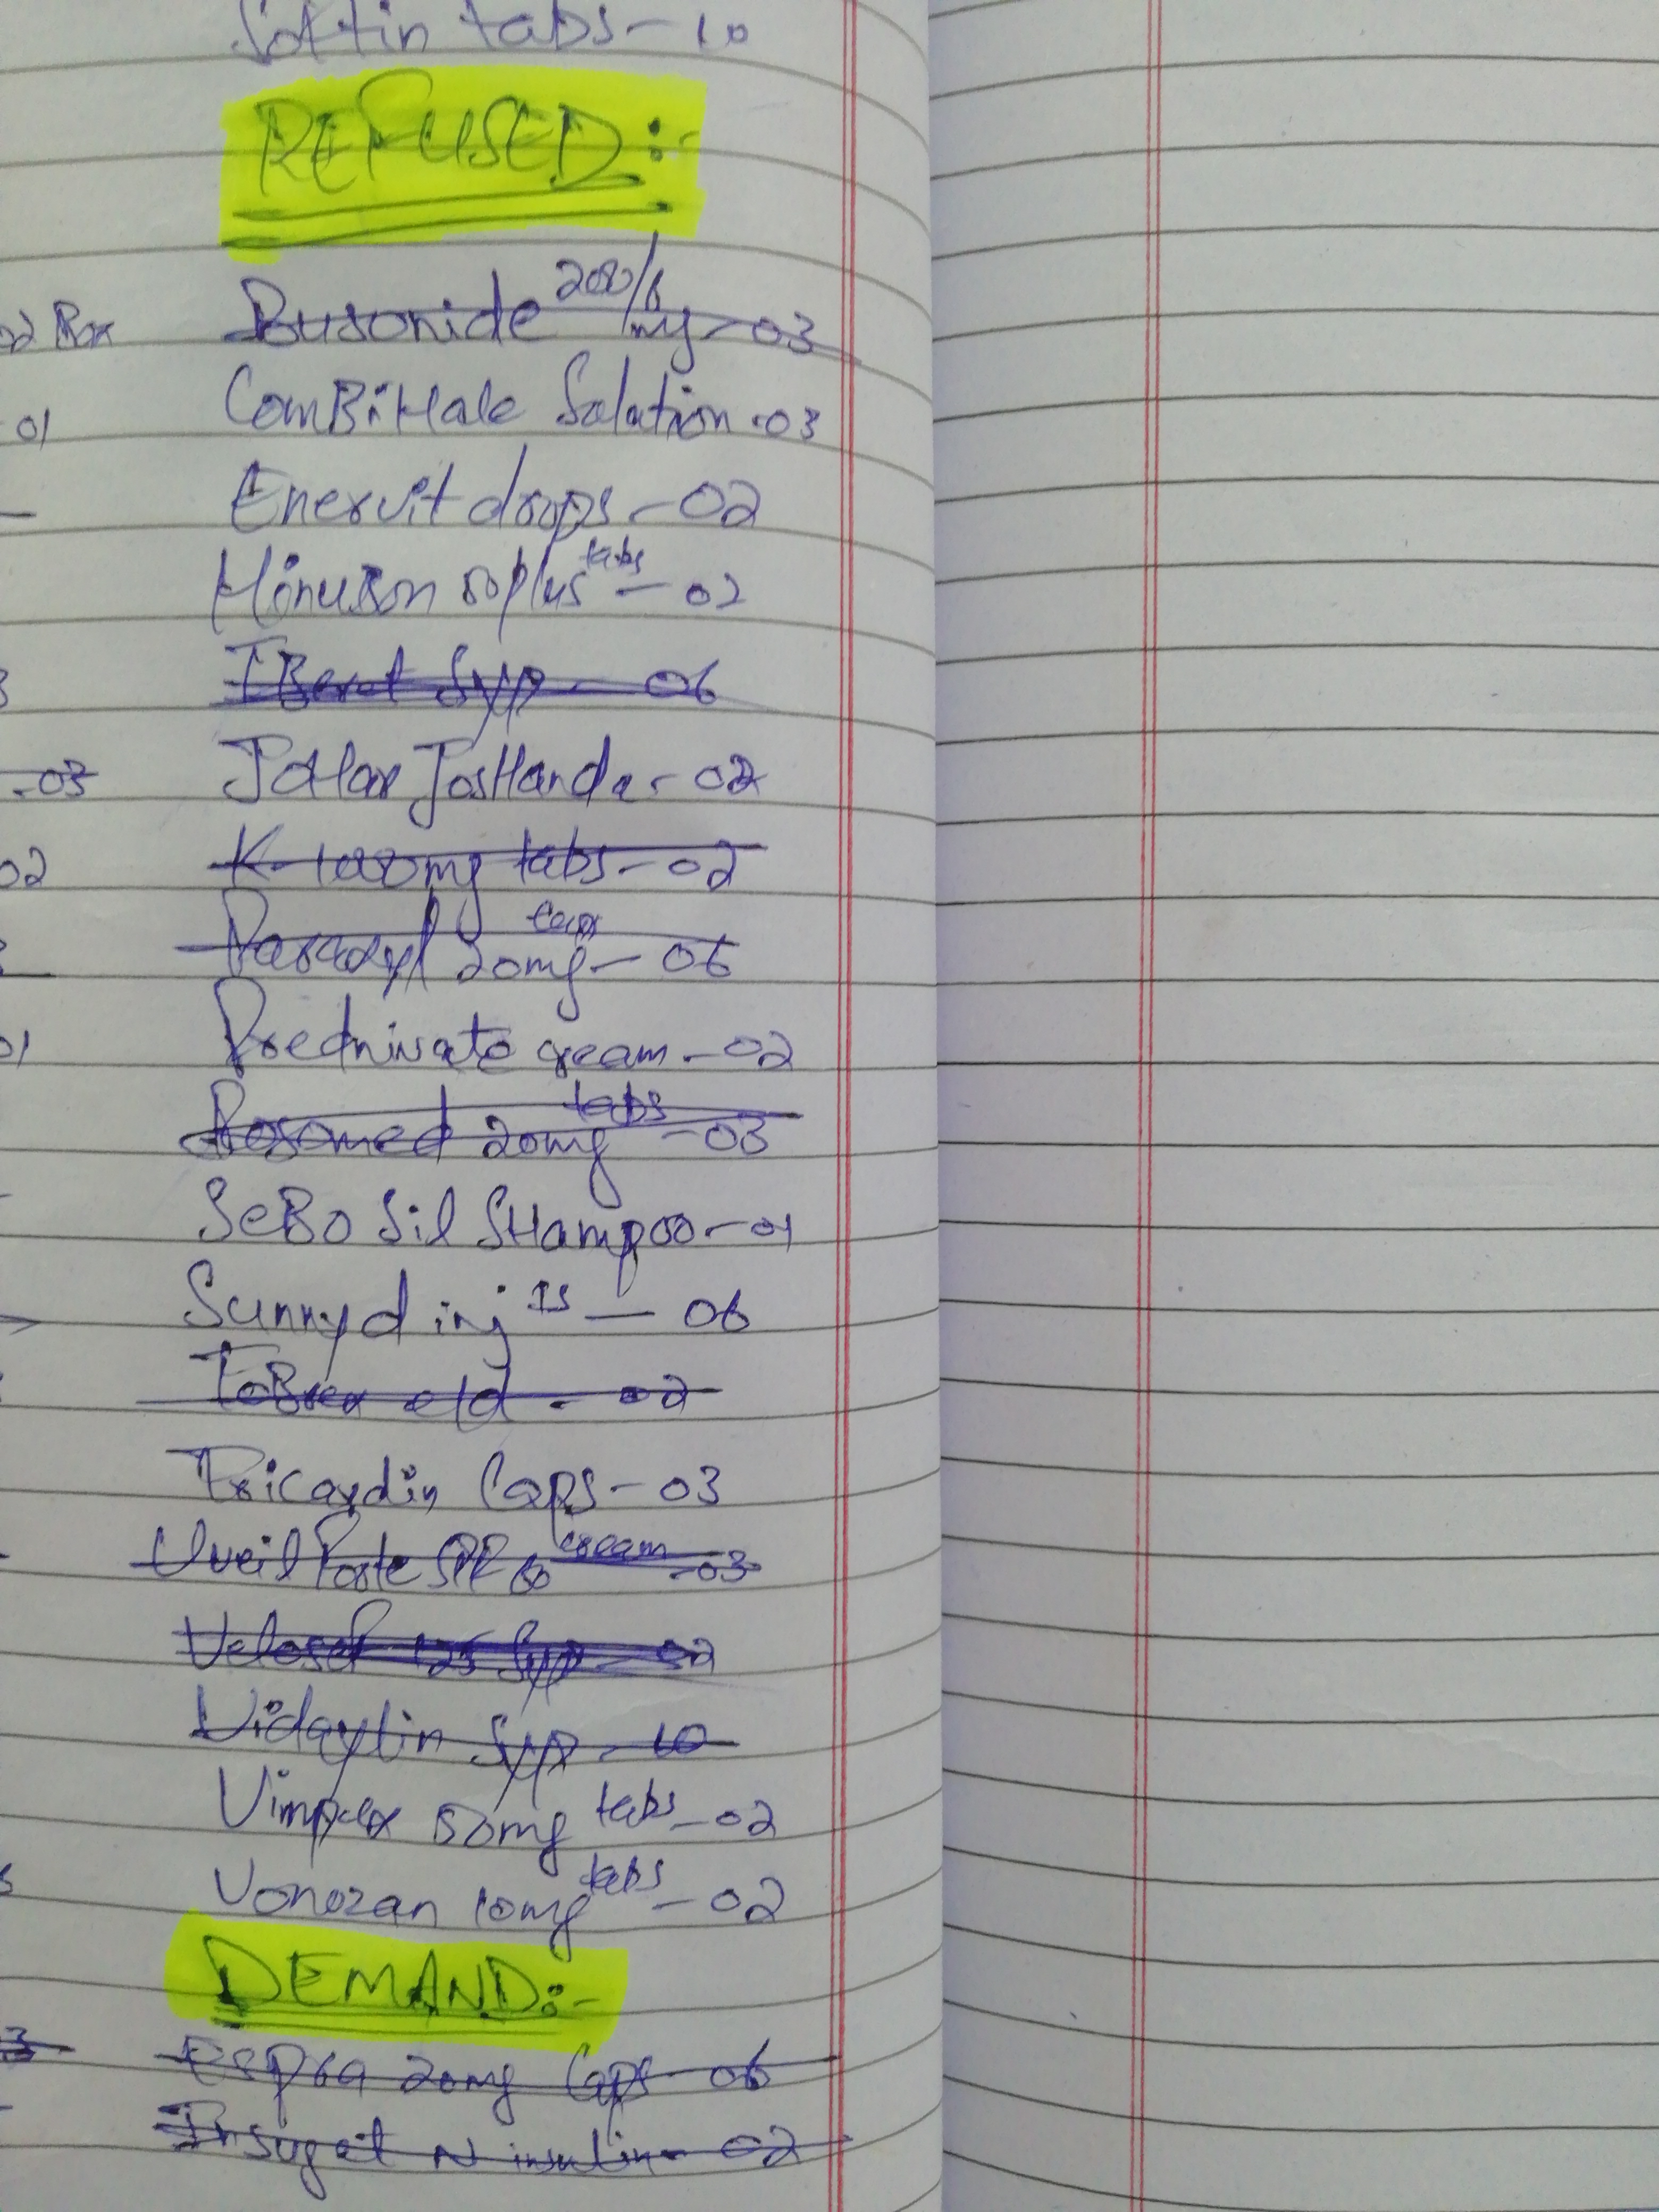 Softin tabs - 10
REFUSED:-
02 Box Busonide 200/6 mg - 03
01 ComBiHale Solution - 03
Enervit drops - 02
plus tabs - 02
IBeret Syp - 06
- 03 JoHar JosHanda - 02
02 K-1000mg tabs - 02
20mg caps - 06
01 Prednivate cream - 02
Rosomed 20mg tabs - 03
SeBo Sil SHampoo - 01
Sunnyd inj IS - 06
ToBrex e/d - 02
Tricardin Caps - 03
Uveil Forte SPF 60 cream - 03
Velosef 125 Syp - 02
Vidaylin Syp - 10
50mg tabs - 02
Vonozan 10mg tabs - 02
DEMAND:-
Espra 20mg Caps - 06
Insuget N insulin - 02